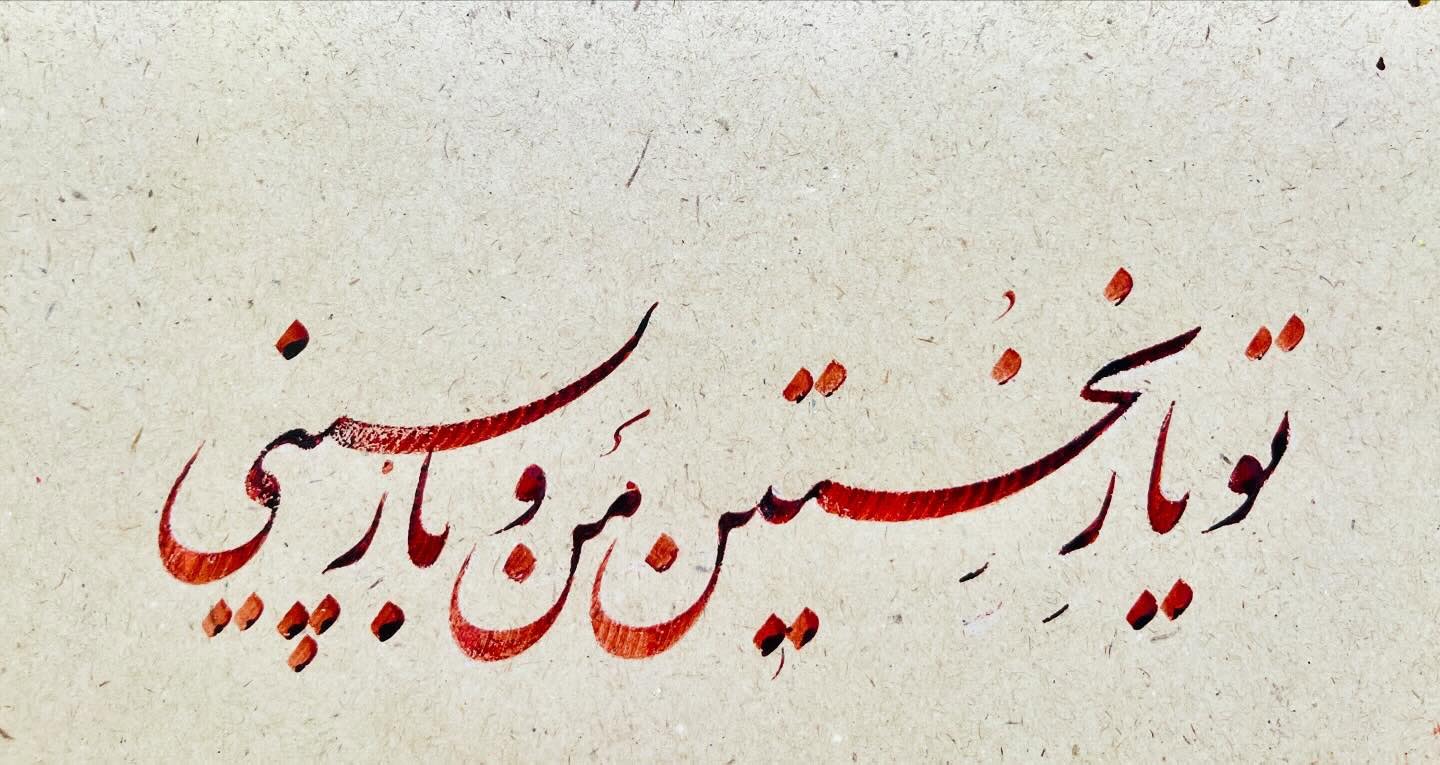 تو یارِ نخُستینِ مَن و بازپسینی